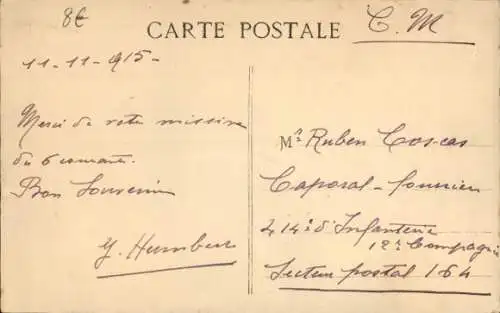 8€
CARTE POSTALE
C. M
11-11-915-
Merci de votre missive
du 6 courant.
Bon Souvenir
Y. Humbert
Mr Ruben Coscas
Caporal-fourrier
414e d'Infanterie
12e Compagnie
Secteur postal 164